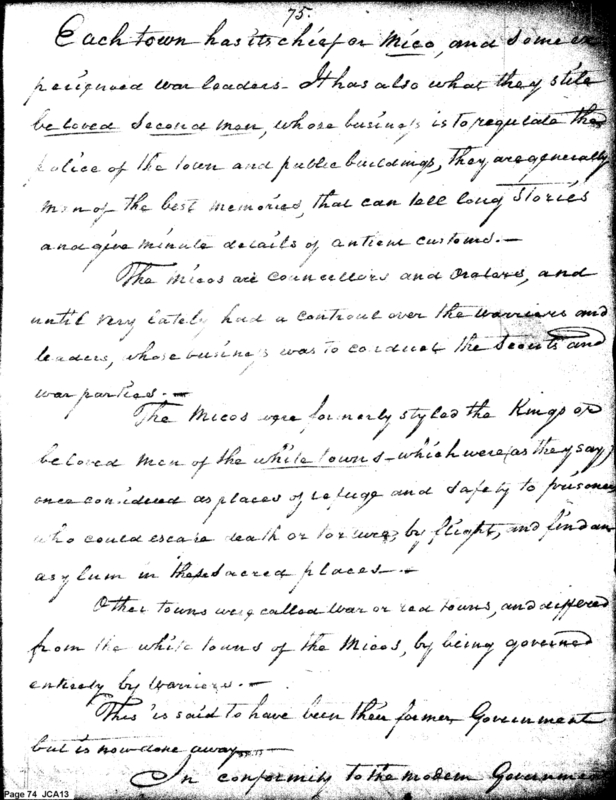 75.
Each town has its chief or Mico, and some ex
perienced war leaders - It has also what they stile
beloved Second men, whose business is to regulate the
police of the town and public buildings, they are generally
men of the best memories, that can tell long stories
and give minute details of antient customs. -
The Micos are councillors and Orators, and
until very lately had a controul over the warriors and
leaders, whose business was to conduct the Scouts and
war parties. -
The Micos were formerly styled the Kings or
beloved men of the white towns - which were (as they say)
once considered as places of refuge and safety to prisoners
who could escape death or torture, by flight, and find an
asylum in these sacred places. -
Other towns were called war or red towns, and differed
from the white towns of the Micos, by being governed
entirely by warriors. -
This is said to have been their former Government
but is now done away -
In conformity to the modern Government
Page 74 JCA13